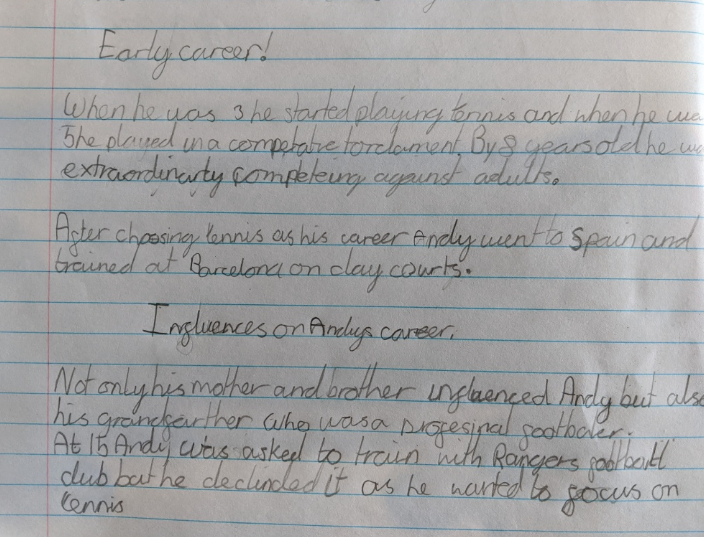 Early career!
When he was 3 he started playing tennis and when he wa
5 he played in a competative tordament. By 8 years old he wa
extraordinarly competeing against adults.
After choosing tennis as his career Andy went to Spain and
trained at Barcelona on clay courts.
Influences on Andys career.
Not only his mother and brother influenced Andy but also
his grandfarther who was a profesinal footbaler.
At 15 Andy was asked to train with Rangers football
club but he declinded it as he wanted to focus on
tennis